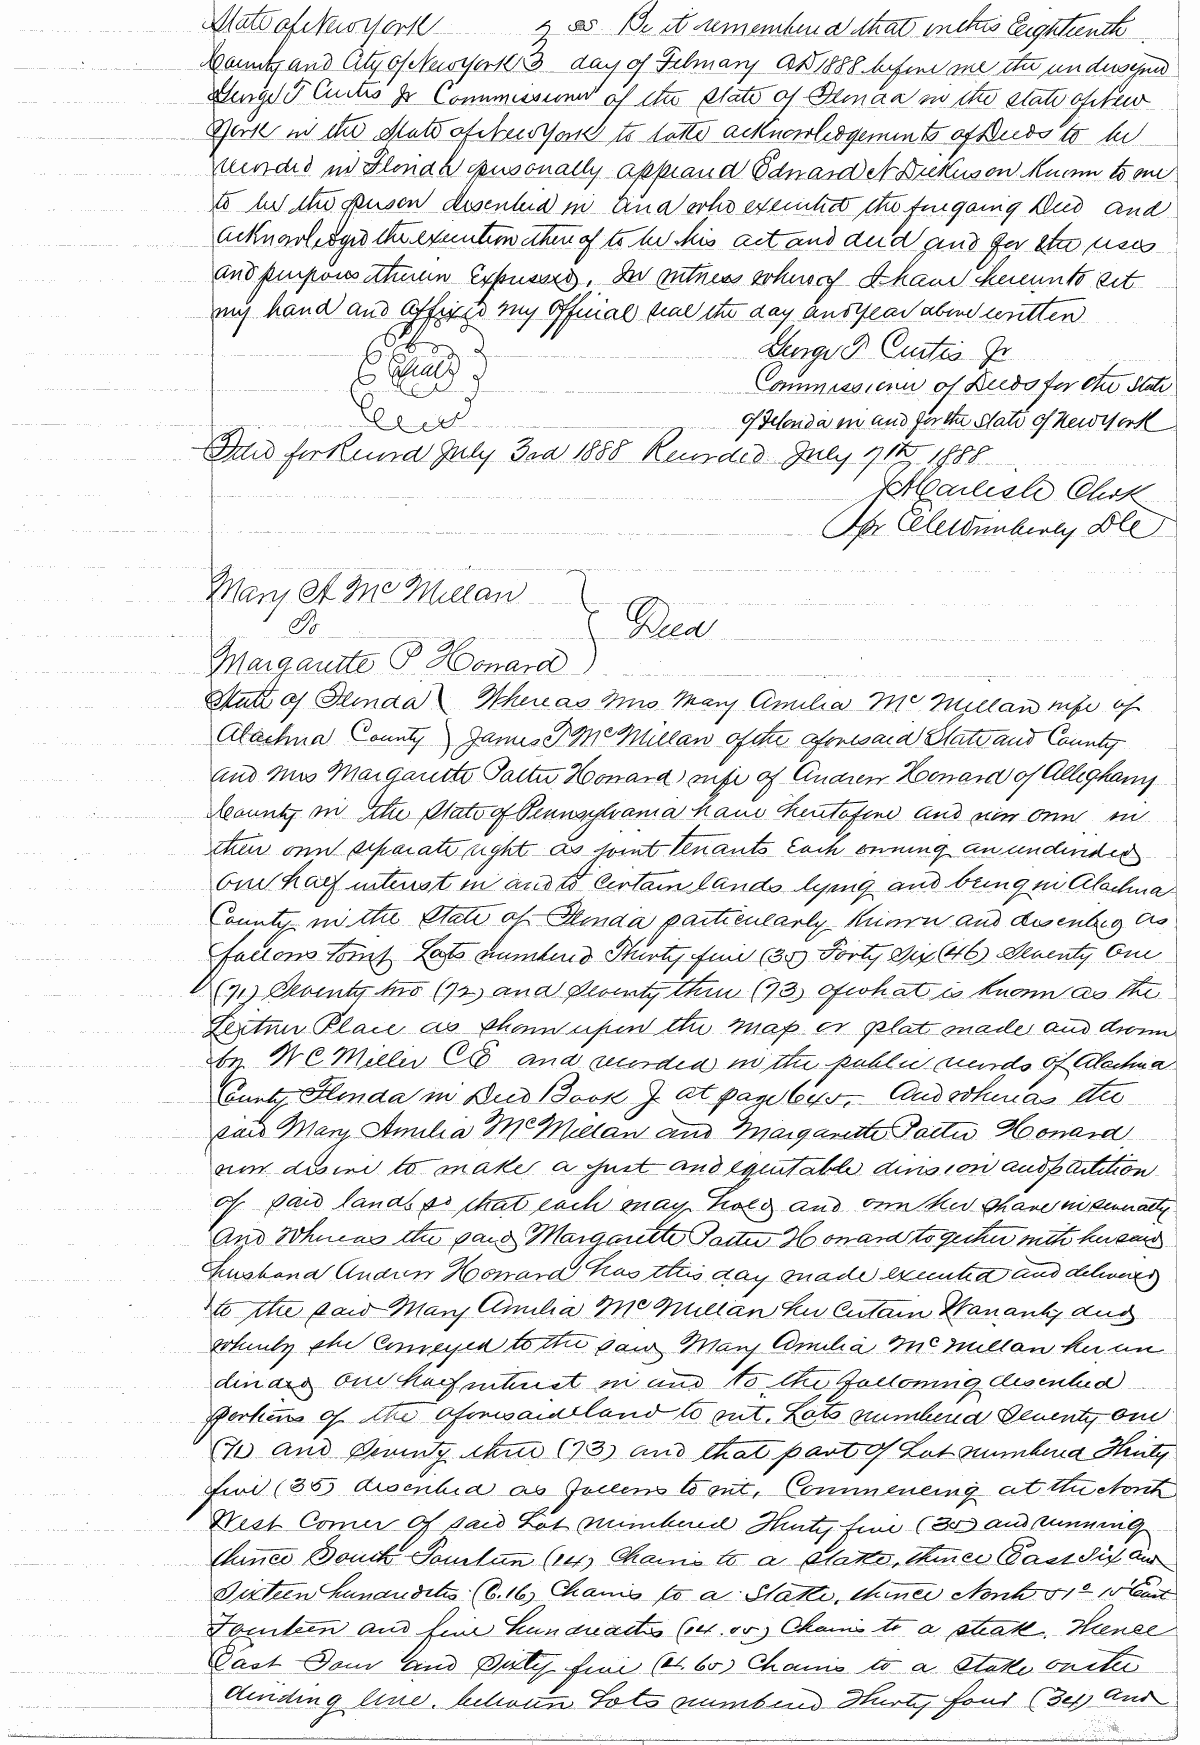 State of New York } ss Be it remembered that on this Eighteenth
County and City of New York } day of February AD 1888 before me the undersigned
George T Curtis Jr Commissioner of the State of Florida in the state of New
York in the State of New York to take acknowledgements of Deeds to be
recorded in Florida personally appeared Edward N Dickerson Known to me
to be the person described in and who executed the foregoing Deed and
acknowledged the execution thereof to be his act and deed and for the uses
and purposes therein Expressed. In witness whereof I have hereunto set
my hand and affixed my Official seal the day and year above written
George T Curtis Jr
Seal
Commissioner of Deeds for the State
of Florida in and for the State of New York
Filed for Record July 3rd 1888 Recorded July 7th 1888
J A Carlisle Clerk
pr Wimberly DC
Mary A McMillan
To } Deed
Margarette P Howard
State of Florida } Whereas Mrs Mary Amelia McMillan wife of
Alachua County } James T McMillan of the aforesaid State and County
and Mrs Margarette Potter Howard wife of Andrew Howard of Alleghany
County in the State of Pennsylvania have heretofore and now own in
their own separate right as joint tenants Each owning an undivided
one half interest in and to certain lands lying and being in Alachua
County in the State of Florida particularly known and described as
follows towit Lots numbered Thirty five (35) Forty Six (46) Seventy One
(71) Seventy two (72) and Seventy three (73) of what is known as the
Leitner Place as shown upon the map or plat made and drawn
by W C Miller CE and recorded in the public records of Alachua
County Florida in Deed Book J at page 645. And whereas the
said Mary Amelia McMillan and Margarette Potter Howard
now desire to make a just and equitable division and partition
of said lands so that each may hold and own her share in severalty
And Whereas the said Margarette Potter Howard together with her said
husband Andrew Howard has this day made executed and delivered
to the said Mary Amelia McMillan her certain Warranty deed
whereby she conveyed to the said Mary Amelia McMillan her un
divided one half interest in and to the following described
portions of the aforesaid land to wit. Lots numbered Seventy one
(71) and Seventy three (73) and that part of Lot numbered Thirty
five (35) described as follows to wit. Commencing at the North
West Corner of said Lot numbered Thirty five (35) and running
thence South Fourteen (14) Chains to a stake, thence East Six and
Sixteen hundredths (6.16) Chains to a Stake, thence North 51° 15' East
Fourteen and five hundredths (14.05) Chains to a steak. Thence
East Four and Sixty five (4.65) Chains to a stake on the
dividing line between Lots numbered Thirty four (34) and